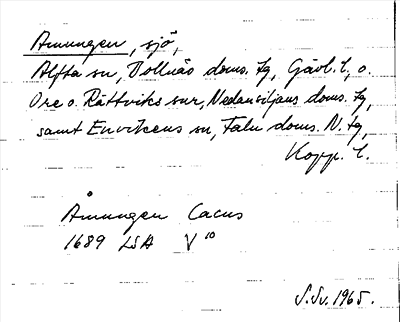 Amungen, sjö,
Alfta sn, Bollnäs doms. tg, Gävl. l, o.
Ore o. Rättviks snr, Nedansiljans doms. tg,
samt Envikens sn, Falu doms. N. tg,
Kopp. l.
Åmungen Lacus
1689 LSA V 10
S.Sv. 1965.